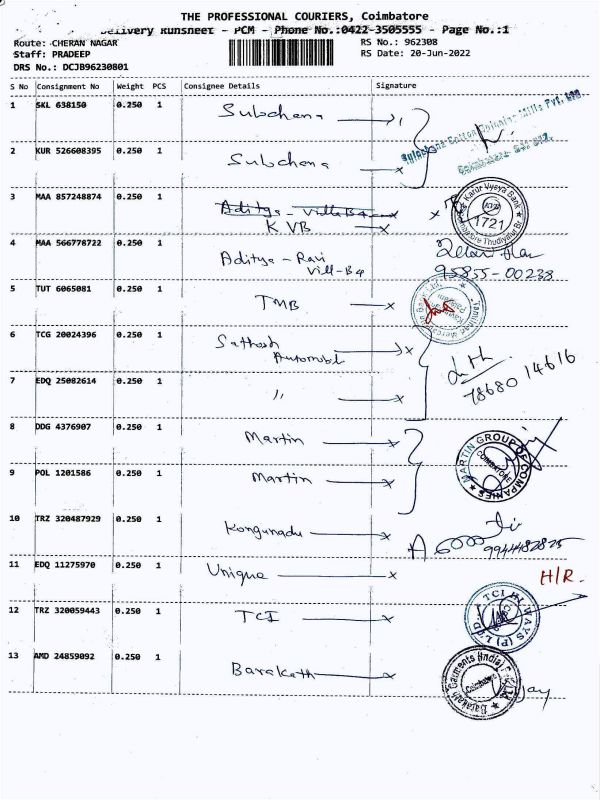 THE PROFESSIONAL COURIERS, Coimbatore
Delivery Runsheet - PCM - Phone No.:0422-3505555 - Page No.:1
Route: CHERAN NAGAR
RS No.: 962308
Staff: PRADEEP
RS Date: 20-Jun-2022
DRS No.: DCJB96230801
S No Consignment No Weight PCS Consignee Details Signature
1 SKL 638150 0.250 1 Subchana
2 KUR 526608395 0.250 1 Subchana
Coimbatore
3 MAA 857248874 0.250 1 Aditya - Villa B4
K VB
Karur Vysya Bank
KVB
1721
4 MAA 566778722 0.250 1 Aditya - Ravi
Vill-B4
95855-00238
5 TUT 6065081 0.250 1 TMB
6 TCG 20024396 0.250 1 Sathosh
Automobl
7 EDQ 25082614 0.250 1 〃
78680 14616
8 DDG 4376907 0.250 1 Martin
9 POL 1201586 0.250 1 Martin
MARTIN GROUP OF COMPANIES
COIMBATORE
10 TRZ 320487929 0.250 1 Kongunadu
9944482825
11 EDQ 11275970 0.250 1 Unique
H/R.
12 TRZ 320059443 0.250 1 TCI
13 AMD 24859092 0.250 1 Barakath
Coimbatore